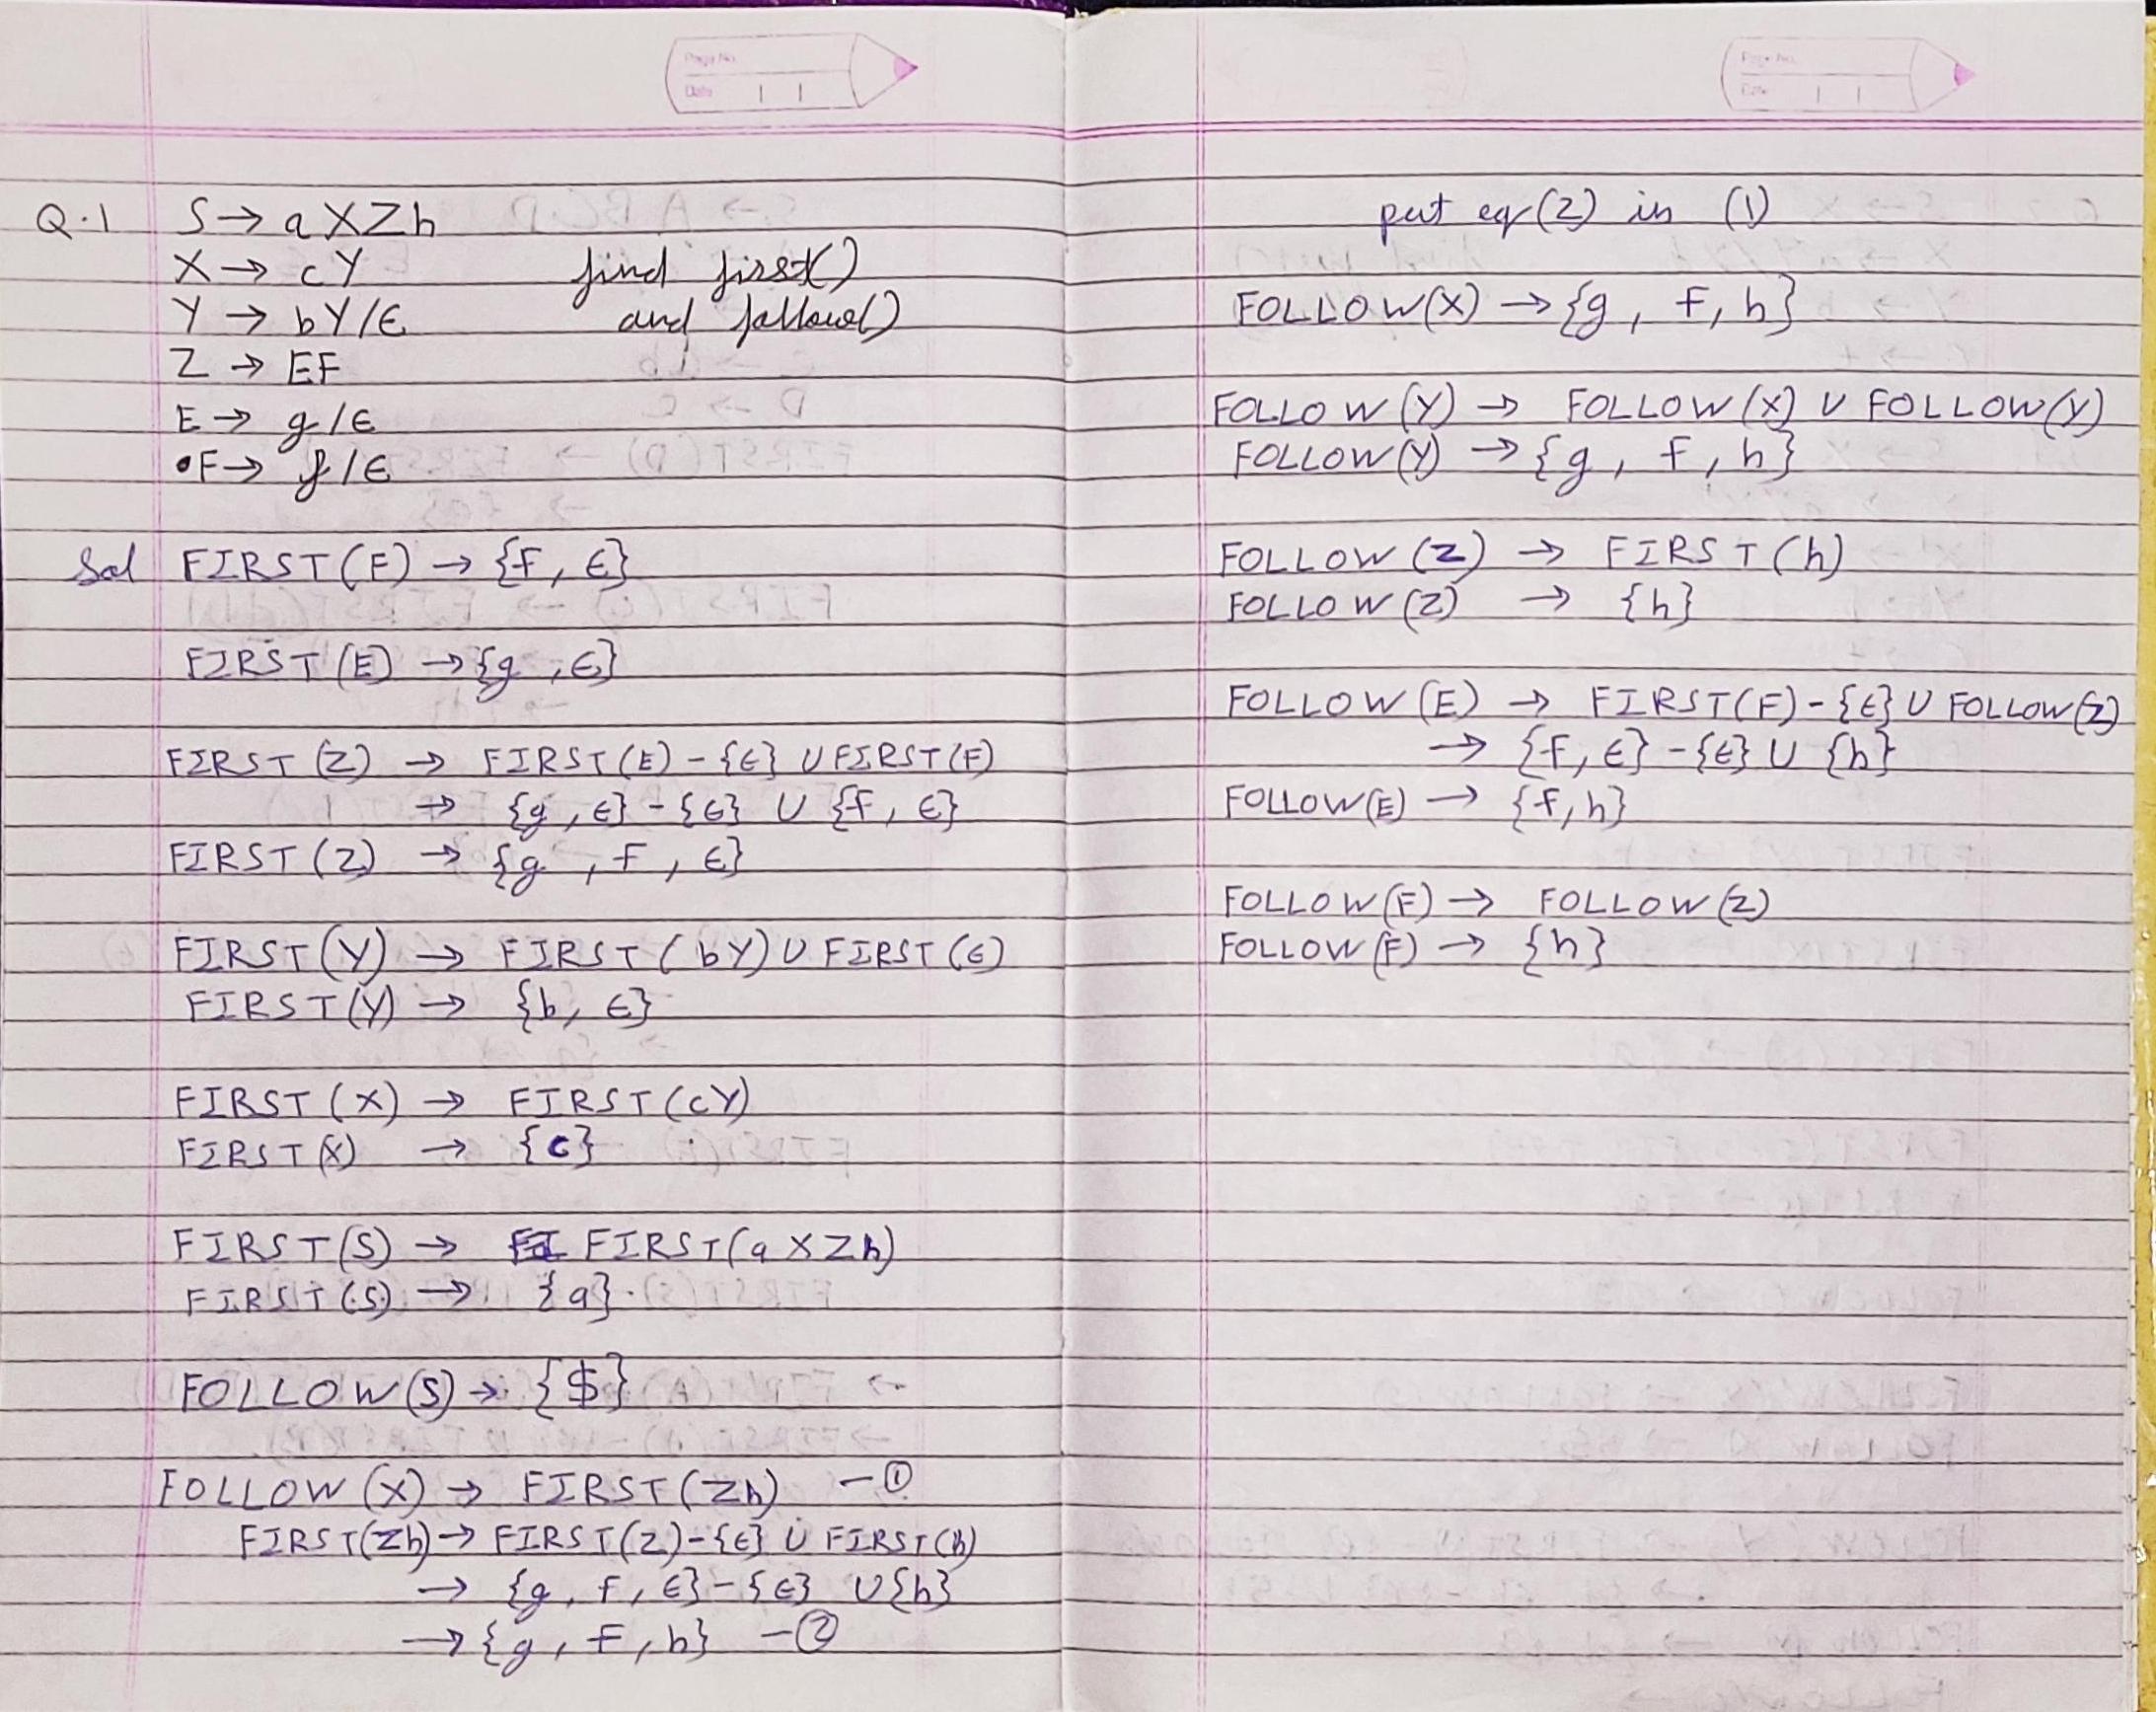 Page No.
Date
Q.1 S → a X Z h
X → c Y find first()
Y → b Y / ε and follow()
Z → E F
E → g / ε
F → f / ε
Sol FIRST (F) → {f, ε}
FIRST (E) → {g, ε}
FIRST (Z) → FIRST (E) - {ε} ∪ FIRST (F)
→ {g, ε} - {ε} ∪ {f, ε}
FIRST (Z) → {g, f, ε}
FIRST (Y) → FIRST (bY) ∪ FIRST (ε)
FIRST (Y) → {b, ε}
FIRST (X) → FIRST (cY)
FIRST (X) → {c}
FIRST (S) → FIRST (a X Z h)
FIRST (S) → {a}.
FOLLOW (S) → {$}
FOLLOW (X) → FIRST (Zh) - ①
FIRST (Zh) → FIRST (Z) - {ε} ∪ FIRST (h)
→ {g, f, ε} - {ε} ∪ {h}
→ {g, f, h} - ②
Page No.
Date
put eq (2) in (1)
FOLLOW (X) → {g, f, h}
FOLLOW (Y) → FOLLOW (X) ∪ FOLLOW (Y)
FOLLOW (Y) → {g, f, h}
FOLLOW (Z) → FIRST (h)
FOLLOW (Z) → {h}
FOLLOW (E) → FIRST (F) - {ε} ∪ FOLLOW (Z)
→ {f, ε} - {ε} ∪ {h}
FOLLOW (E) → {f, h}
FOLLOW (F) → FOLLOW (Z)
FOLLOW (F) → {h}